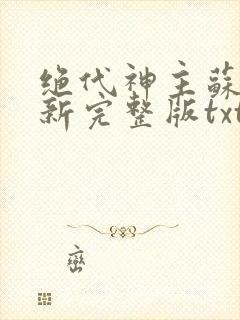 绝代神主蘇
新完整版txt
峦